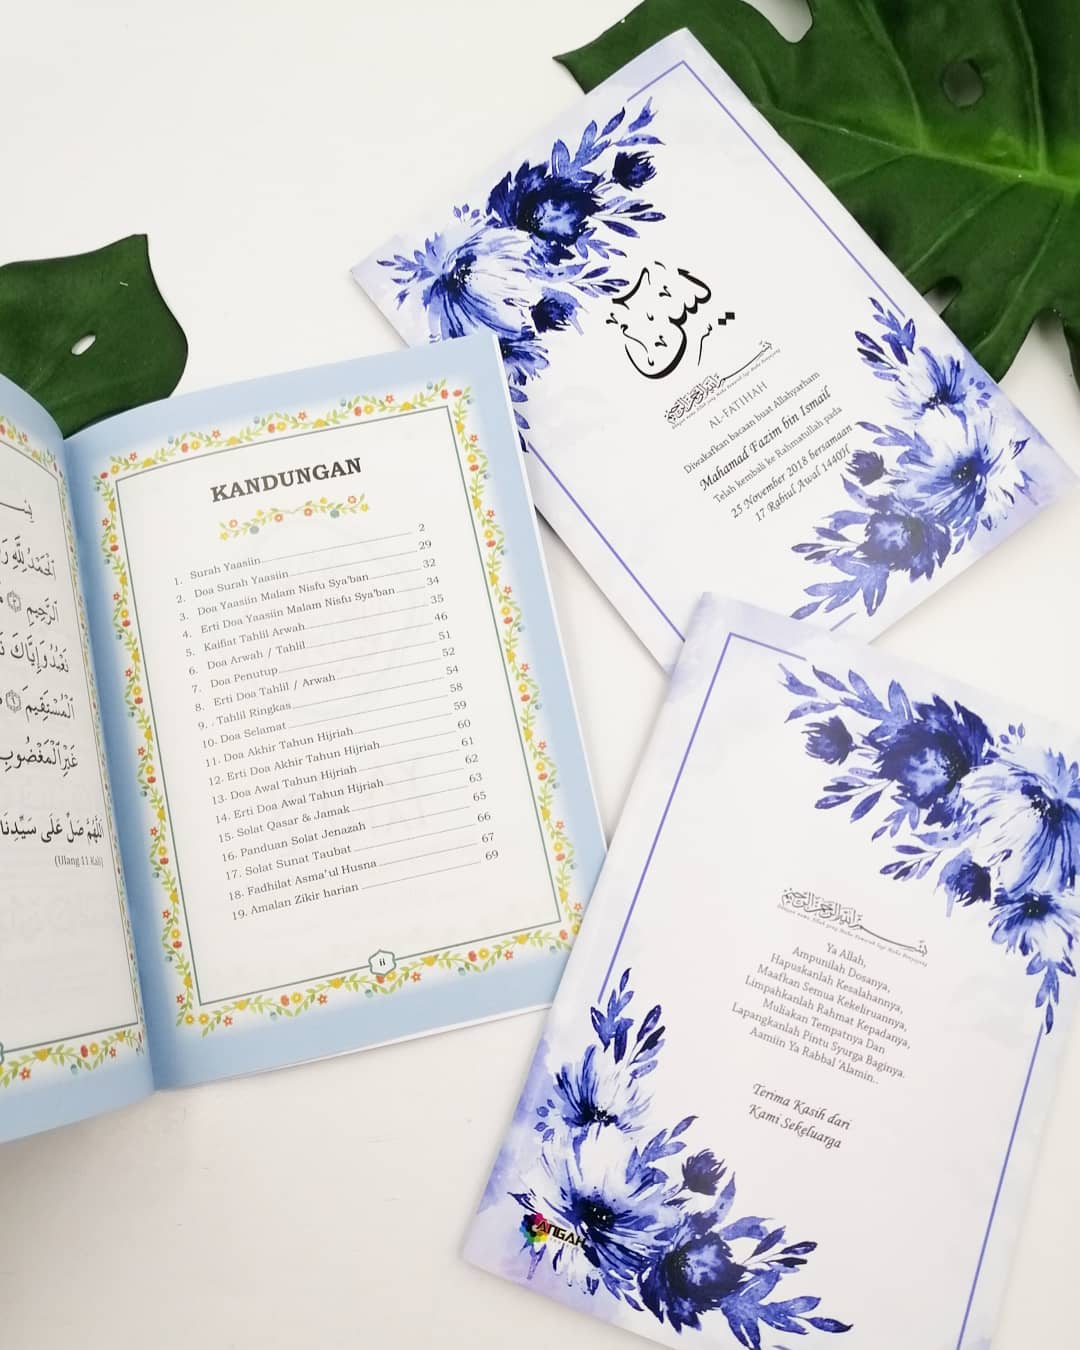 يس
AL-FATIHAH
Diwakafkan bacaan buat Allahyarham
Mahamad Fazim bin Ismail
Telah kembali ke Rahmatullah pada
25 November 2018 bersamaan
17 Rabiul Awal 1440H
KANDUNGAN
1. Surah Yaasiin 2
2. Doa Surah Yaasiin 29
3. Doa Yaasiin Malam Nisfu Sya'ban 32
4. Erti Doa Yaasiin Malam Nisfu Sya'ban 34
5. Kaifiat Tahlil Arwah 35
6. Doa Arwah / Tahlil 46
7. Doa Penutup 51
8. Erti Doa Tahlil / Arwah 52
9. . Tahlil Ringkas 54
10. Doa Selamat 58
11. Doa Akhir Tahun Hijriah 59
12. Erti Doa Akhir Tahun Hijriah 60
13. Doa Awal Tahun Hijriah 61
14. Erti Doa Awal Tahun Hijriah 62
15. Solat Qasar & Jamak 63
16. Panduan Solat Jenazah 65
17. Solat Sunat Taubat 66
18. Fadhilat Asma'ul Husna 67
19. Amalan Zikir harian 69
ii
اَلْحَمْدُ لِلّٰهِ
الرَّحِيمِ ٣
نَعْبُدُ وَإِيَّاكَ
الْمُسْتَقِيمَ ٦
غَيْرِ الْمَغْضُوبِ
اَللّٰهُمَّ صَلِّ عَلَى سَيِّدِنَا
(Ulang 11 Kali)
Dengan nama Allah yang Maha Pemurah lagi Maha Penyayang
Ya Allah,
Ampunilah Dosanya,
Hapuskanlah Kesalahannya,
Maafkan Semua Kekeliruannya,
Limpahkanlah Rahmat Kepadanya,
Muliakan Tempatnya Dan
Lapangkanlah Pintu Syurga Baginya.
Aamiin Ya Rabbal 'Alamin..
Terima Kasih dari
Kami Sekeluarga
ANGAH